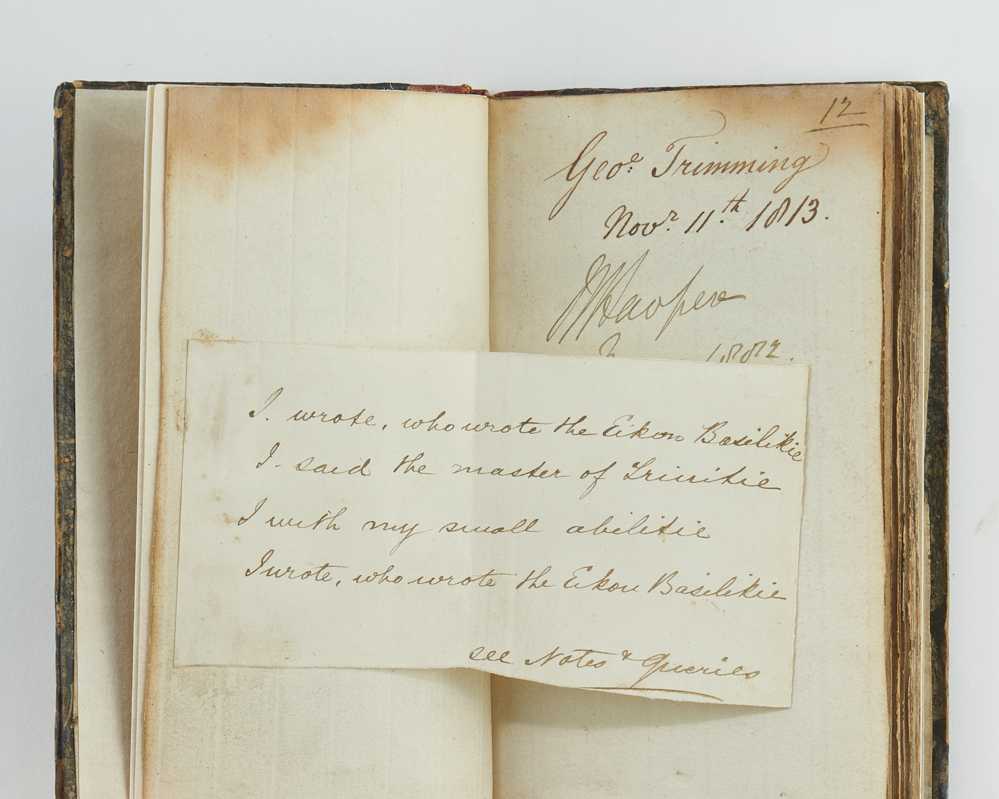 12
Geo.e Trimming
Nov.r 11.th 1813.
1882.
I. wrote, who wrote the Eikon Basilikie
I. said the master of Trinitie
I with my small abilitie
I wrote, who wrote the Eikon Basilikie
see Notes & Queries